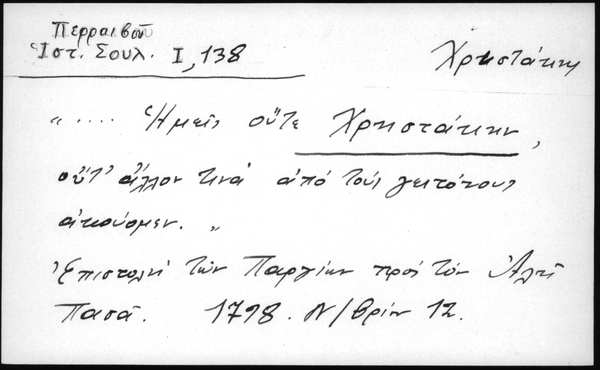 Περραιβοῦ
Ἱστ. Σουλ. I, 138
Χρηστάκης
".... Ἡμεῖς οὔτε Χρηστάκην,
οὔτ' ἄλλον τινά ἀπό τούς γειτόνους
ἀκούομεν."
Ἐπιστολή τῶν Παργίων πρός τόν Ἀλῆ
Πασᾶ. 1798. Ν/βρίου 12.